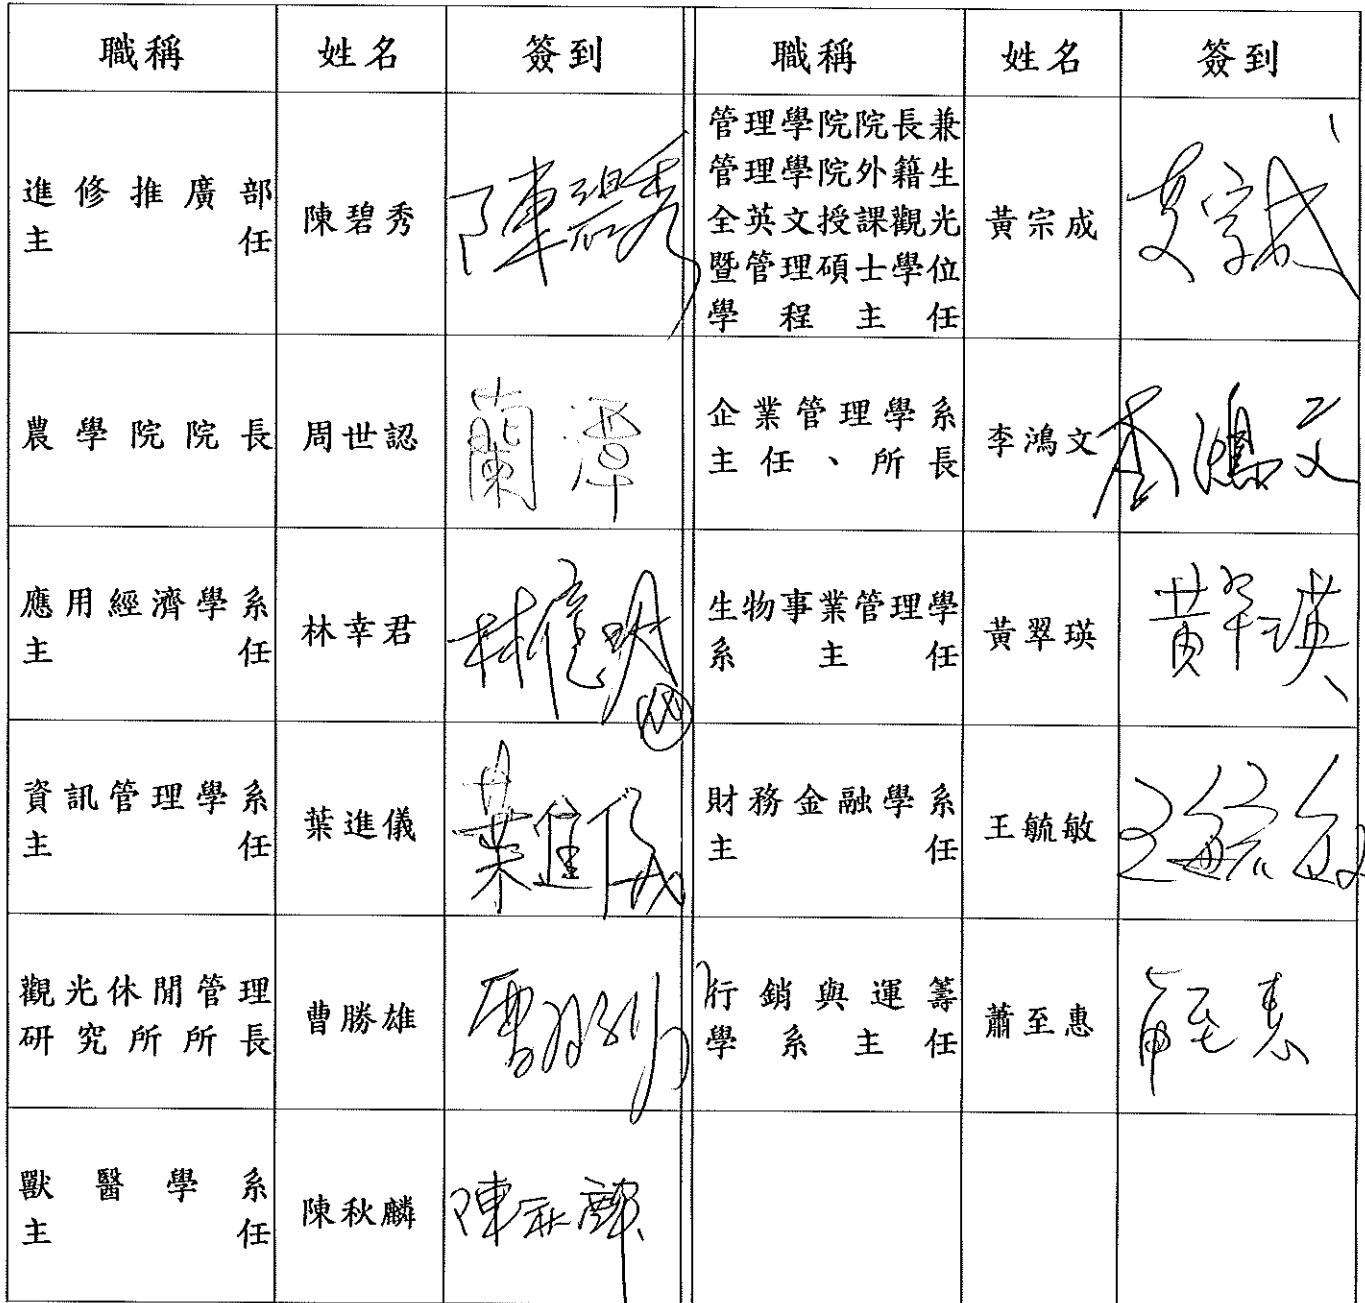 職稱 姓名 簽到 職稱 姓名 簽到
進修推廣部
主任
陳碧秀
陳碧秀
管理學院院長兼
管理學院外籍生
全英文授課觀光
暨管理碩士學位
學程主任
黃宗成
黃宗成
農學院院長
周世認
蘭潭
企業管理學系
主任、所長
李鴻文
李鴻文
應用經濟學系
主任
林幸君
生物事業管理學
系主任
黃翠瑛
黃翠瑛
資訊管理學系
主任
葉進儀
葉進儀
財務金融學系
主任
王毓敏
王毓敏
觀光休閒管理
研究所所長
曹勝雄
行銷與運籌
學系主任
蕭至惠
蕭至惠
獸醫學系
主任
陳秋麟
陳秋麟